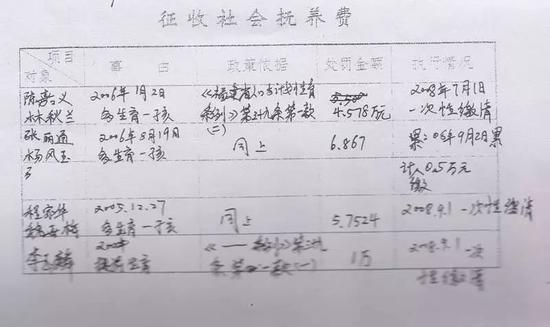 征收社会抚养费
项目
对象
事 由
政策依据
处罚金额
执行情况
陈嘉义
林秋兰
2006年1月2日
多生育一孩
《福建省人口与计划生育
条例》第卅九条第一款
(二)
4.578万元
2008年7月1日
一次性缴清
张丽通
杨凤玉
2006年5月19日
多生育一孩
同上
6.867
06年9月2日累
计入0.5万元
缴
程
2005.12.27
多生育一孩
同上
5.7524
2008.9.1一次性缴清
李
《——条例》第卅
条第一款(一)
1万
2008.9.1一次
性缴清